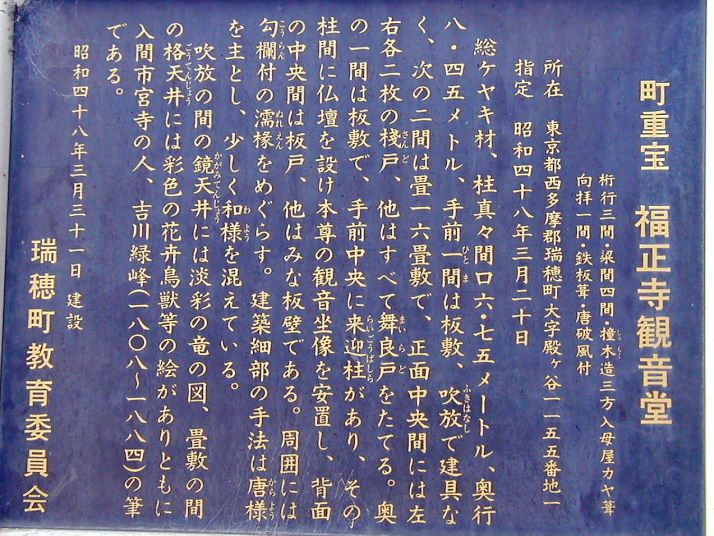 町重宝 福正寺観音堂
桁行三間・梁間四間・撞木造三方入母屋カヤ葺
向拝一間・鉄板葺・唐破風付
所在 東京都西多摩郡瑞穂町大字殿ヶ谷一一五五番地一
指定 昭和四十八年三月二十日
総ケヤキ材、柱真々間口六・七五メートル、奥行
八・四五メトル、手前一間は板敷、吹放で建具な
く、次の二間は畳一六畳敷で、正面中央間には左
右各二枚の棧戸、他はすべて舞良戸をたてる。奥
の一間は板敷で、手前中央に来迎柱があり、その
柱間に仏壇を設け本尊の観音坐像を安置し、背面
の中央間は板戸、他はみな板壁である。周囲には
勾欄付の濡椽をめぐらす。建築細部の手法は唐様
を主とし、少しく和様を混えている。
吹放の間の鏡天井には淡彩の竜の図、畳敷の間
の格天井には彩色の花卉鳥獣等の絵がありともに
入間市宮寺の人、吉川緑峰(一八〇八〜一八八四)の筆
である。
昭和四十八年三月三十一日 建設
瑞穂町教育委員会